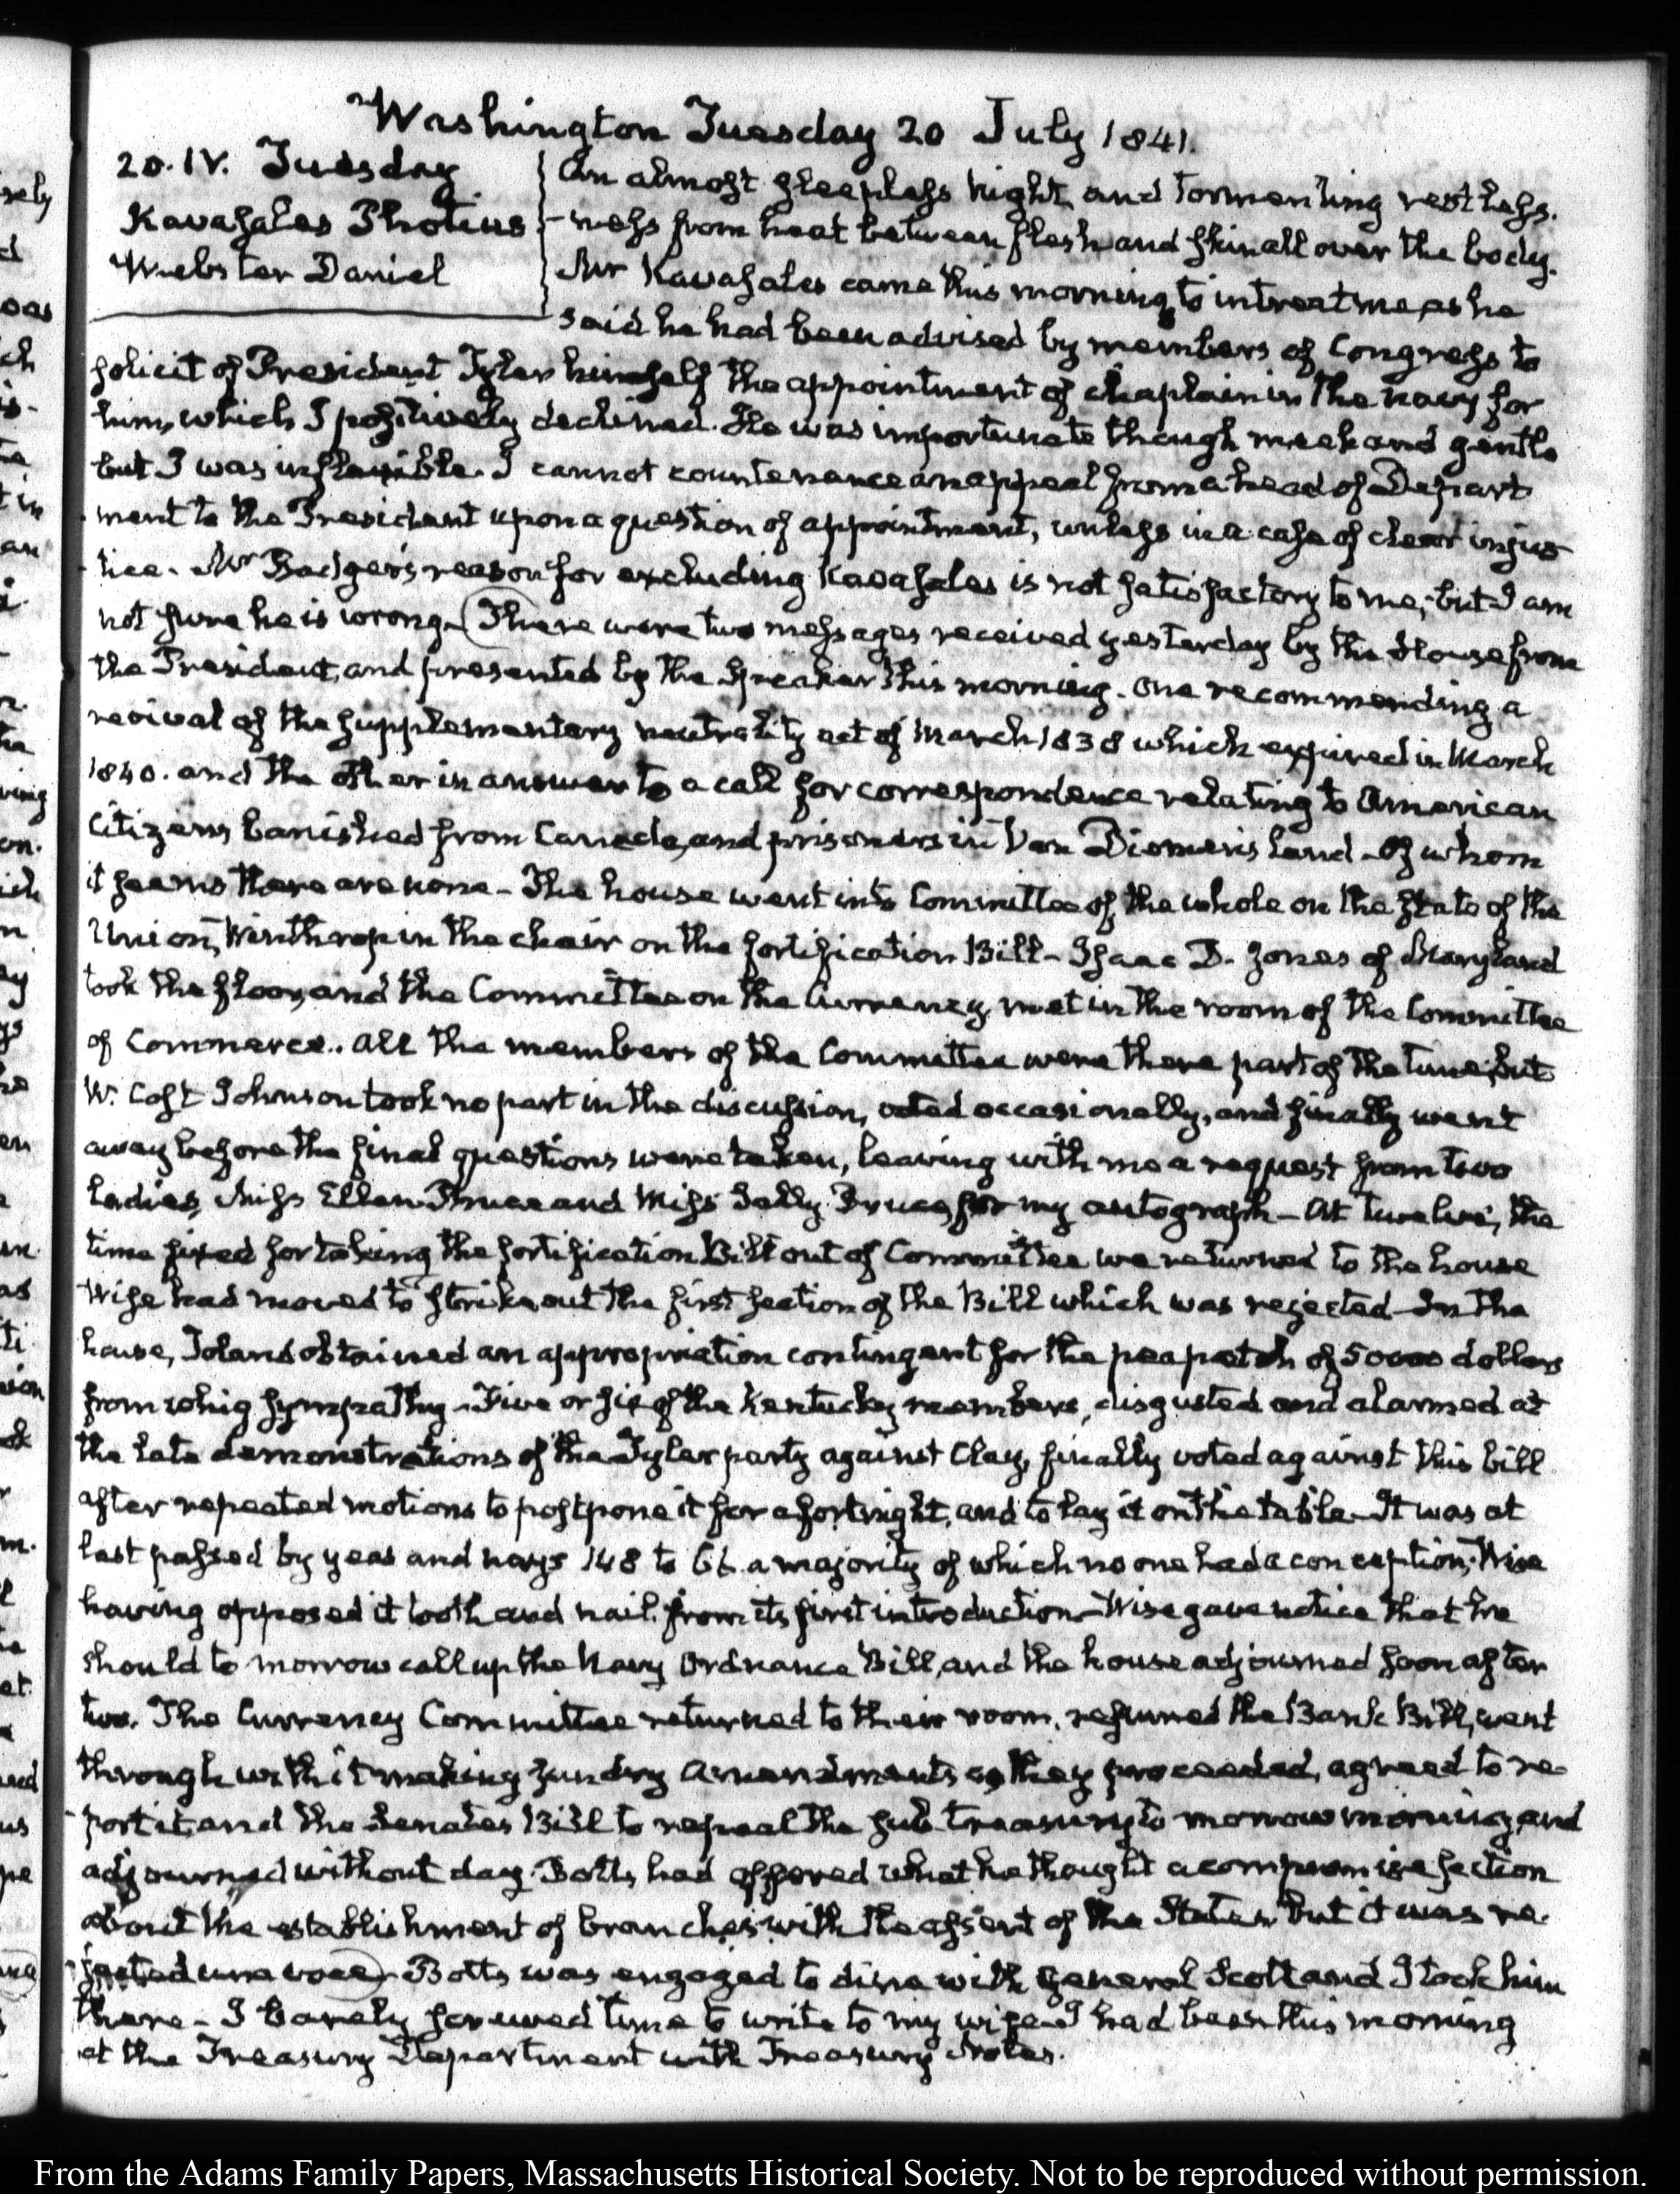 Washington Tuesday 20 July 1841.
20. IV. Tuesday
Kavasales Photius
Webster Daniel
An almost sleepless night, and tormenting restless-
ness from heat between flesh and skin all over the body.
Mr Kavasales came this morning to intreat me, as he
said he had been advised by members of Congress to
solicit of President Tyler himself the appointment of chaplain in the navy for
him, which I positively declined. He was importunate though meek and gentle
but I was inflexible. I cannot countenance an appeal from a head of Depart
ment to the President upon a question of appointment, unless in a case of clear injus
tice. Mr Badger's reason for excluding Kavasales is not satisfactory to me; but I am
not sure he is wrong. There were two messages received yesterday by the House from
the President, and presented by the Speaker this morning. One recommending a
revival of the supplementary neutrality act of March 1838 which expired in March
1840. and the other in answer to a call for correspondence relating to American
Citizens, banished from Canada, and prisoners in Van Diemen's Land - Of whom
it seems there are none - The house went into Committee of the whole on the State of the
Union, Winthrop in the chair on the fortification Bill - Isaac D. Jones of Maryland
took the floor, and the Committee on the Currency, met in the room of the Committee
of Commerce.. All the members of the Committee were there part of the time, but
W. Cost Johnson took no part in the discussion, voted occasionally, and finally went
away before the final questions were taken, leaving with me a request from two
ladies, Miss Ellen Bruce and Miss Sally Bruce, for my autograph - At twelve, the
time fixed for taking the fortification Bill out of Committee we returned to the house
Wise had moved to strike out the first section of the Bill which was rejected - In the
house, Toland obtained an appropriation contingent for the of 50000 dollars
from whig sympathy - Five or six of the Kentucky members, disgusted and alarmed at
the late demonstrations of the Tyler party against Clay, finally voted against this bill
after repeated motions to postpone it for a fortnight, and to lay it on the table - It was at
last passed by yeas and nays 148 to 66. a majority of which no one had a conception; Wise
having opposed it tooth and nail from its first introduction - Wise gave notice that he
should to morrow call up the Navy Ordnance Bill, and the house adjourned soon after
two. The Currency Committee returned to their room, resumed the Bank Bill, went
through with it making sundry amendments as they proceeded, agreed to re-
port it and the Senates Bill to repeal the sub-treasury to morrow morning, and
adjourned without day. Botts, had offered what he thought a compromise section
about the establishment of branches, with the assent of the States, but it was re-
jected una voce - Botts was engaged to dine with General Scott and I took him
there - I barely secured time to write to my wife - I had been this morning
at the Treasury Department with Treasury Notes.
From the Adams Family Papers, Massachusetts Historical Society. Not to be reproduced without permission.